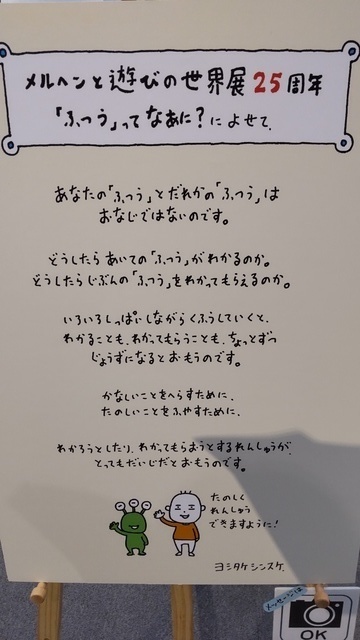 メルヘンと遊びの世界展25周年
「ふつう」ってなあに？によせて、
あなたの「ふつう」とだれかの「ふつう」は
おなじではないのです。
どうしたらあいての「ふつう」がわかるのか。
どうしたらじぶんの「ふつう」をわかってもらえるのか。
いろいろしっぱいしながらくふうしていくと、
わかることも、わかってもらうことも、ちょっとずつ
じょうずになるとおもうのです。
かなしいことをへらすために、
たのしいことをふやすために、
わかろうとしたり、わかってもらおうとするれんしゅうが、
とってもだいじだとおもうのです。
たのしく
れんしゅう
できますように！
ヨシタケシンスケ。
メッセージは
OK